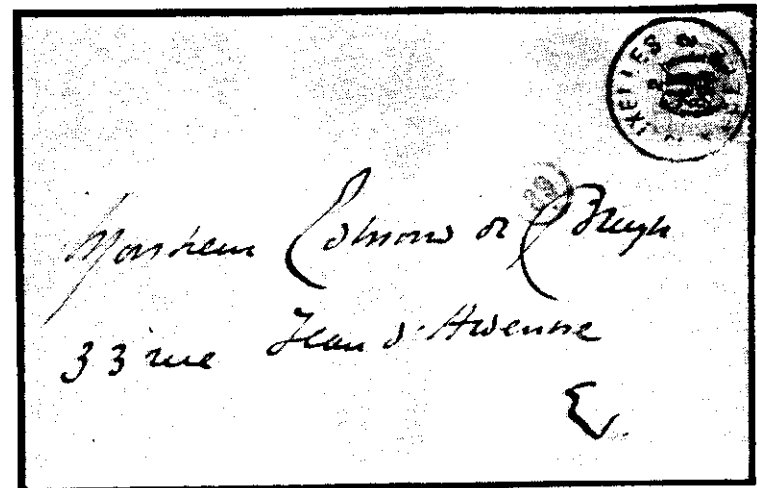 IXELLES
Monsieur Edmond de Bruyn
33 rue Jean d'Ardenne
E/V.